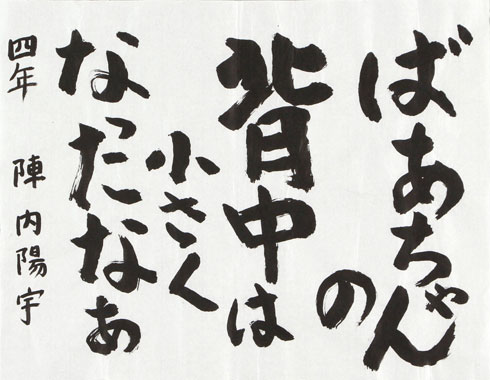 ばあちゃん
の
背中は
小さく
なったなぁ
四年 陣内陽宇